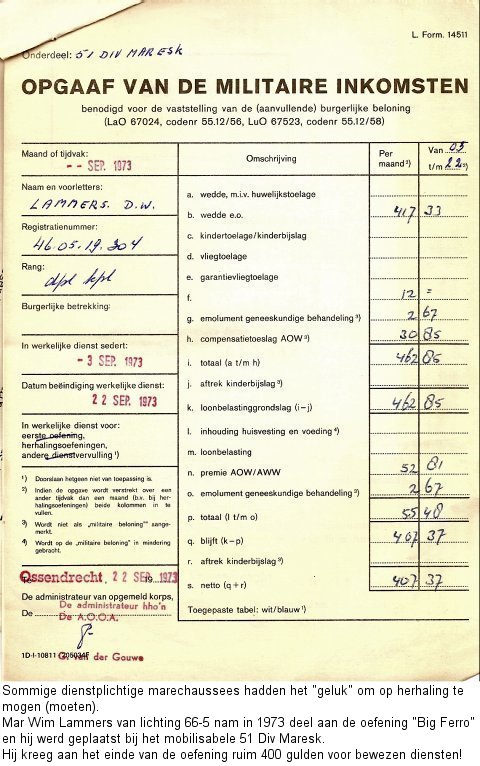 L. Form. 14511
Onderdeel: 51 DIV MARESK
OPGAAF VAN DE MILITAIRE INKOMSTEN
benodigd voor de vaststelling van de (aanvullende) burgerlijke beloning
(LaO 67024, codenr 55.12/56, LuO 67523, codenr 55.12/58)
Maand of tijdvak:
-- SEP. 1973
Omschrijving
Per maand²)
Van 03
t/m 22²)
Naam en voorletters:
LAMMERS. D.W.
Registratienummer:
46.05.19.304
Rang:
dpl kpl
Burgerlijke betrekking:
In werkelijke dienst sedert:
- 3 SEP. 1973
Datum beëindiging werkelijke dienst:
22 SEP. 1973
In werkelijke dienst voor:
eerste oefening,
herhalingsoefeningen,
andere dienstvervulling ¹)
¹) Doorslaan hetgeen niet van toepassing is.
²) Indien de opgave wordt verstrekt over een
ander tijdvak dan een maand (b.v. bij her-
halingsoefeningen) beide kolommen in te
vullen.
³) Wordt niet als „militaire beloning" aange-
merkt.
⁴) Wordt op de „militaire beloning" in mindering
gebracht.
a. wedde, m.i.v. huwelijkstoelage
b. wedde e.o. 417 33
c. kindertoelage/kinderbijslag
d. vliegtoelage
e. garantievliegtoelage
f. 12 =
g. emolument geneeskundige behandeling ³) 2 67
h. compensatietoeslag AOW ³) 30 85
i. totaal (a t/m h) 462 85
j. aftrek kinderbijslag ³)
k. loonbelastinggrondslag (i–j) 462 85
l. inhouding huisvesting en voeding ⁴)
m. loonbelasting
n. premie AOW/AWW 52 81
o. emolument geneeskundige behandeling ³) 2 67
p. totaal (l t/m o) 55 48
q. blijft (k–p) 407 37
r. aftrek kinderbijslag ³)
s. netto (q+r) 407 37
Toegepaste tabel: wit/blauw ¹)
Ossendrecht, 22 SEP. 1973
De administrateur van opgemeld korps,
De administrateur hho'n
De
De A.O.O.A.
G. van der Gouwe
Sommige dienstplichtige marechaussees hadden het "geluk" om op herhaling te
mogen (moeten).
Mar Wim Lammers van lichting 66-5 nam in 1973 deel aan de oefening "Big Ferro"
en hij werd geplaatst bij het mobilisabele 51 Div Maresk.
Hij kreeg aan het einde van de oefening ruim 400 gulden voor bewezen diensten!